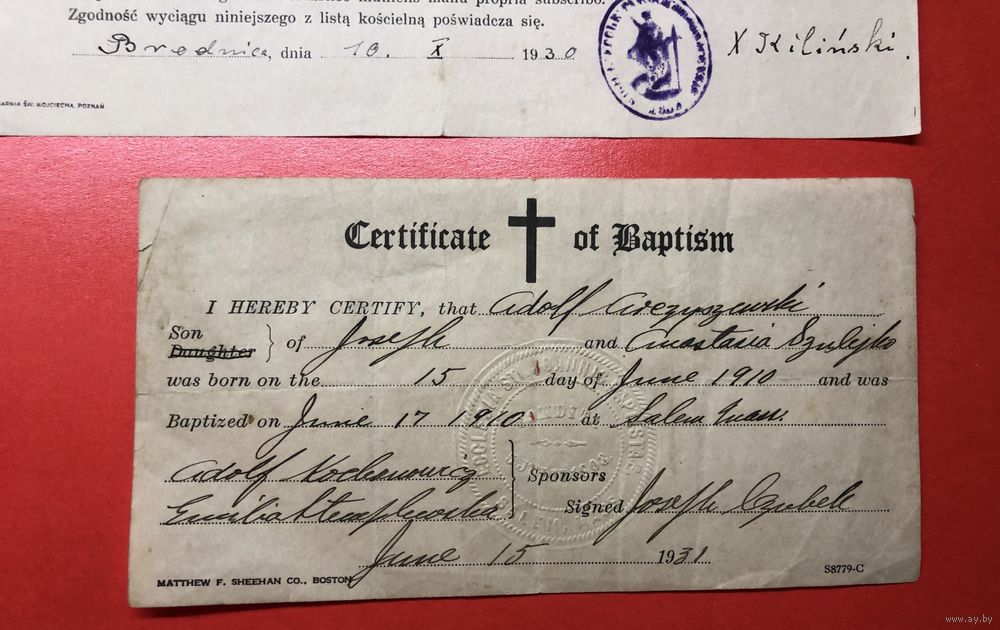 Zgodność wyciągu niniejszego z listą kościelną poświadcza się.
Brodnica, dnia 10. X 1930
X Kiliński.
ŚW. WOJCIECHA, POZNAŃ
Certificate of Baptism
I HEREBY CERTIFY, that Adolf
Son
Daughter
of Joseph and Anastasia Szulejko
was born on the 15 day of June 1910 and was
Baptized on June 17 1910 at Salem Mass.
Adolf
Emilia
Sponsors
Signed Joseph Czubek
June 15 1931
MATTHEW F. SHEEHAN CO., BOSTON
S8779-C
www.ay.by